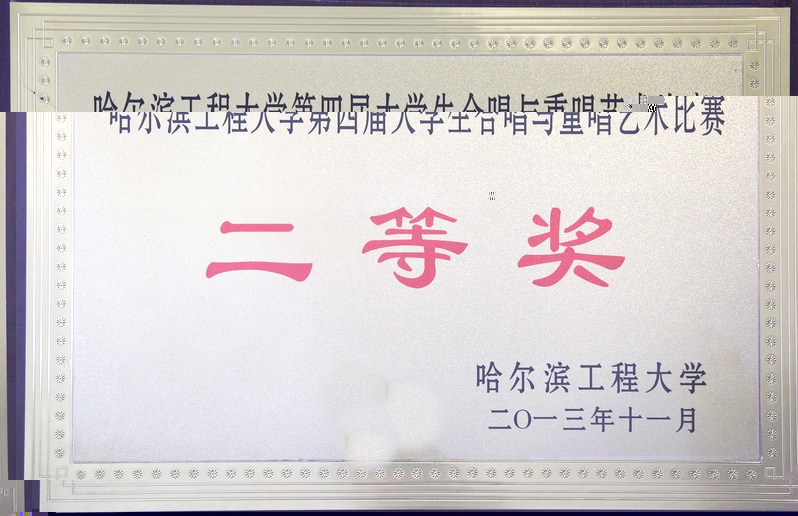 哈尔滨工程大学第四届大学生合唱与重唱艺术比赛
二等奖
哈尔滨工程大学
二〇一三年十一月